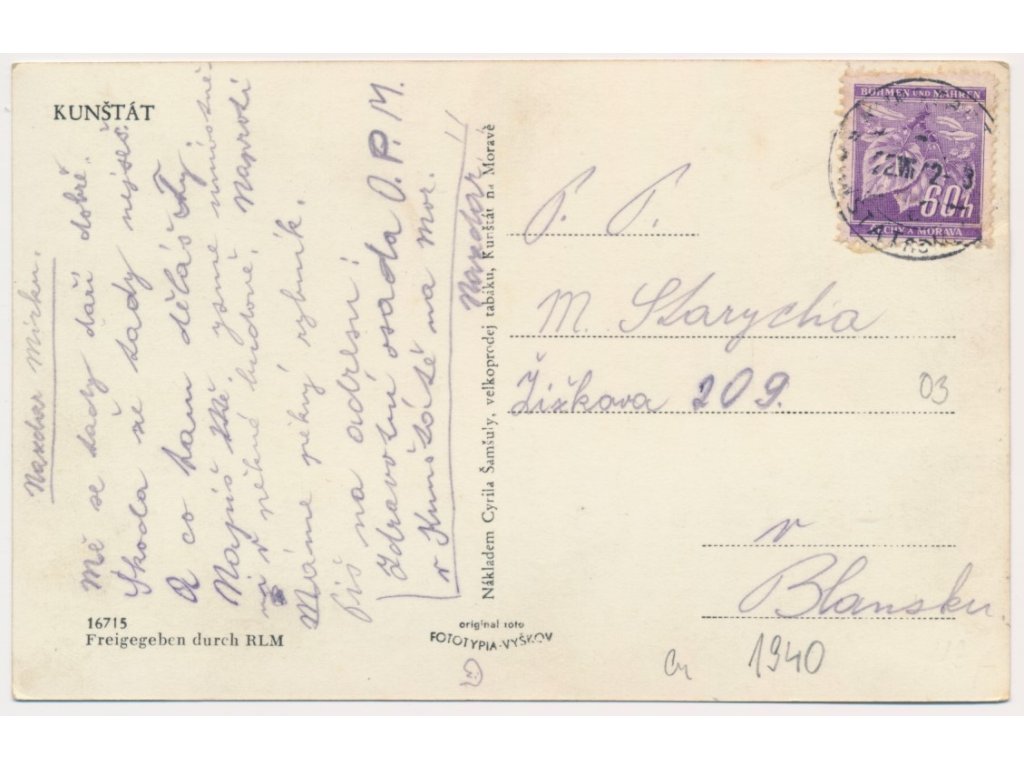 KUNŠTÁT
Nazdar Mirku.
Mě se tady daří dobře.
Škoda že tady nejseš.
A co tam děláš Ty.
Napiš kde jsme umístně-
ni v pěkné budově, naproti
Máme pěkný rybník.
Piš na adresu:
Zdravotní osada O.P.M.
v Kunštátě na Mor.
Nazdar!!
16715
Freigegeben durch RLM
Nákladem Cyrila Šamšuly, velkoprodej tabáku, Kunštát na Moravě
original foto
FOTOTYPIA-VYŠKOV
BÖHMEN UND MÄHREN
60h
ČECHY A MORAVA
P. T.
M. Starycha
Žižkova 209.
v
Blansku.
03
1940